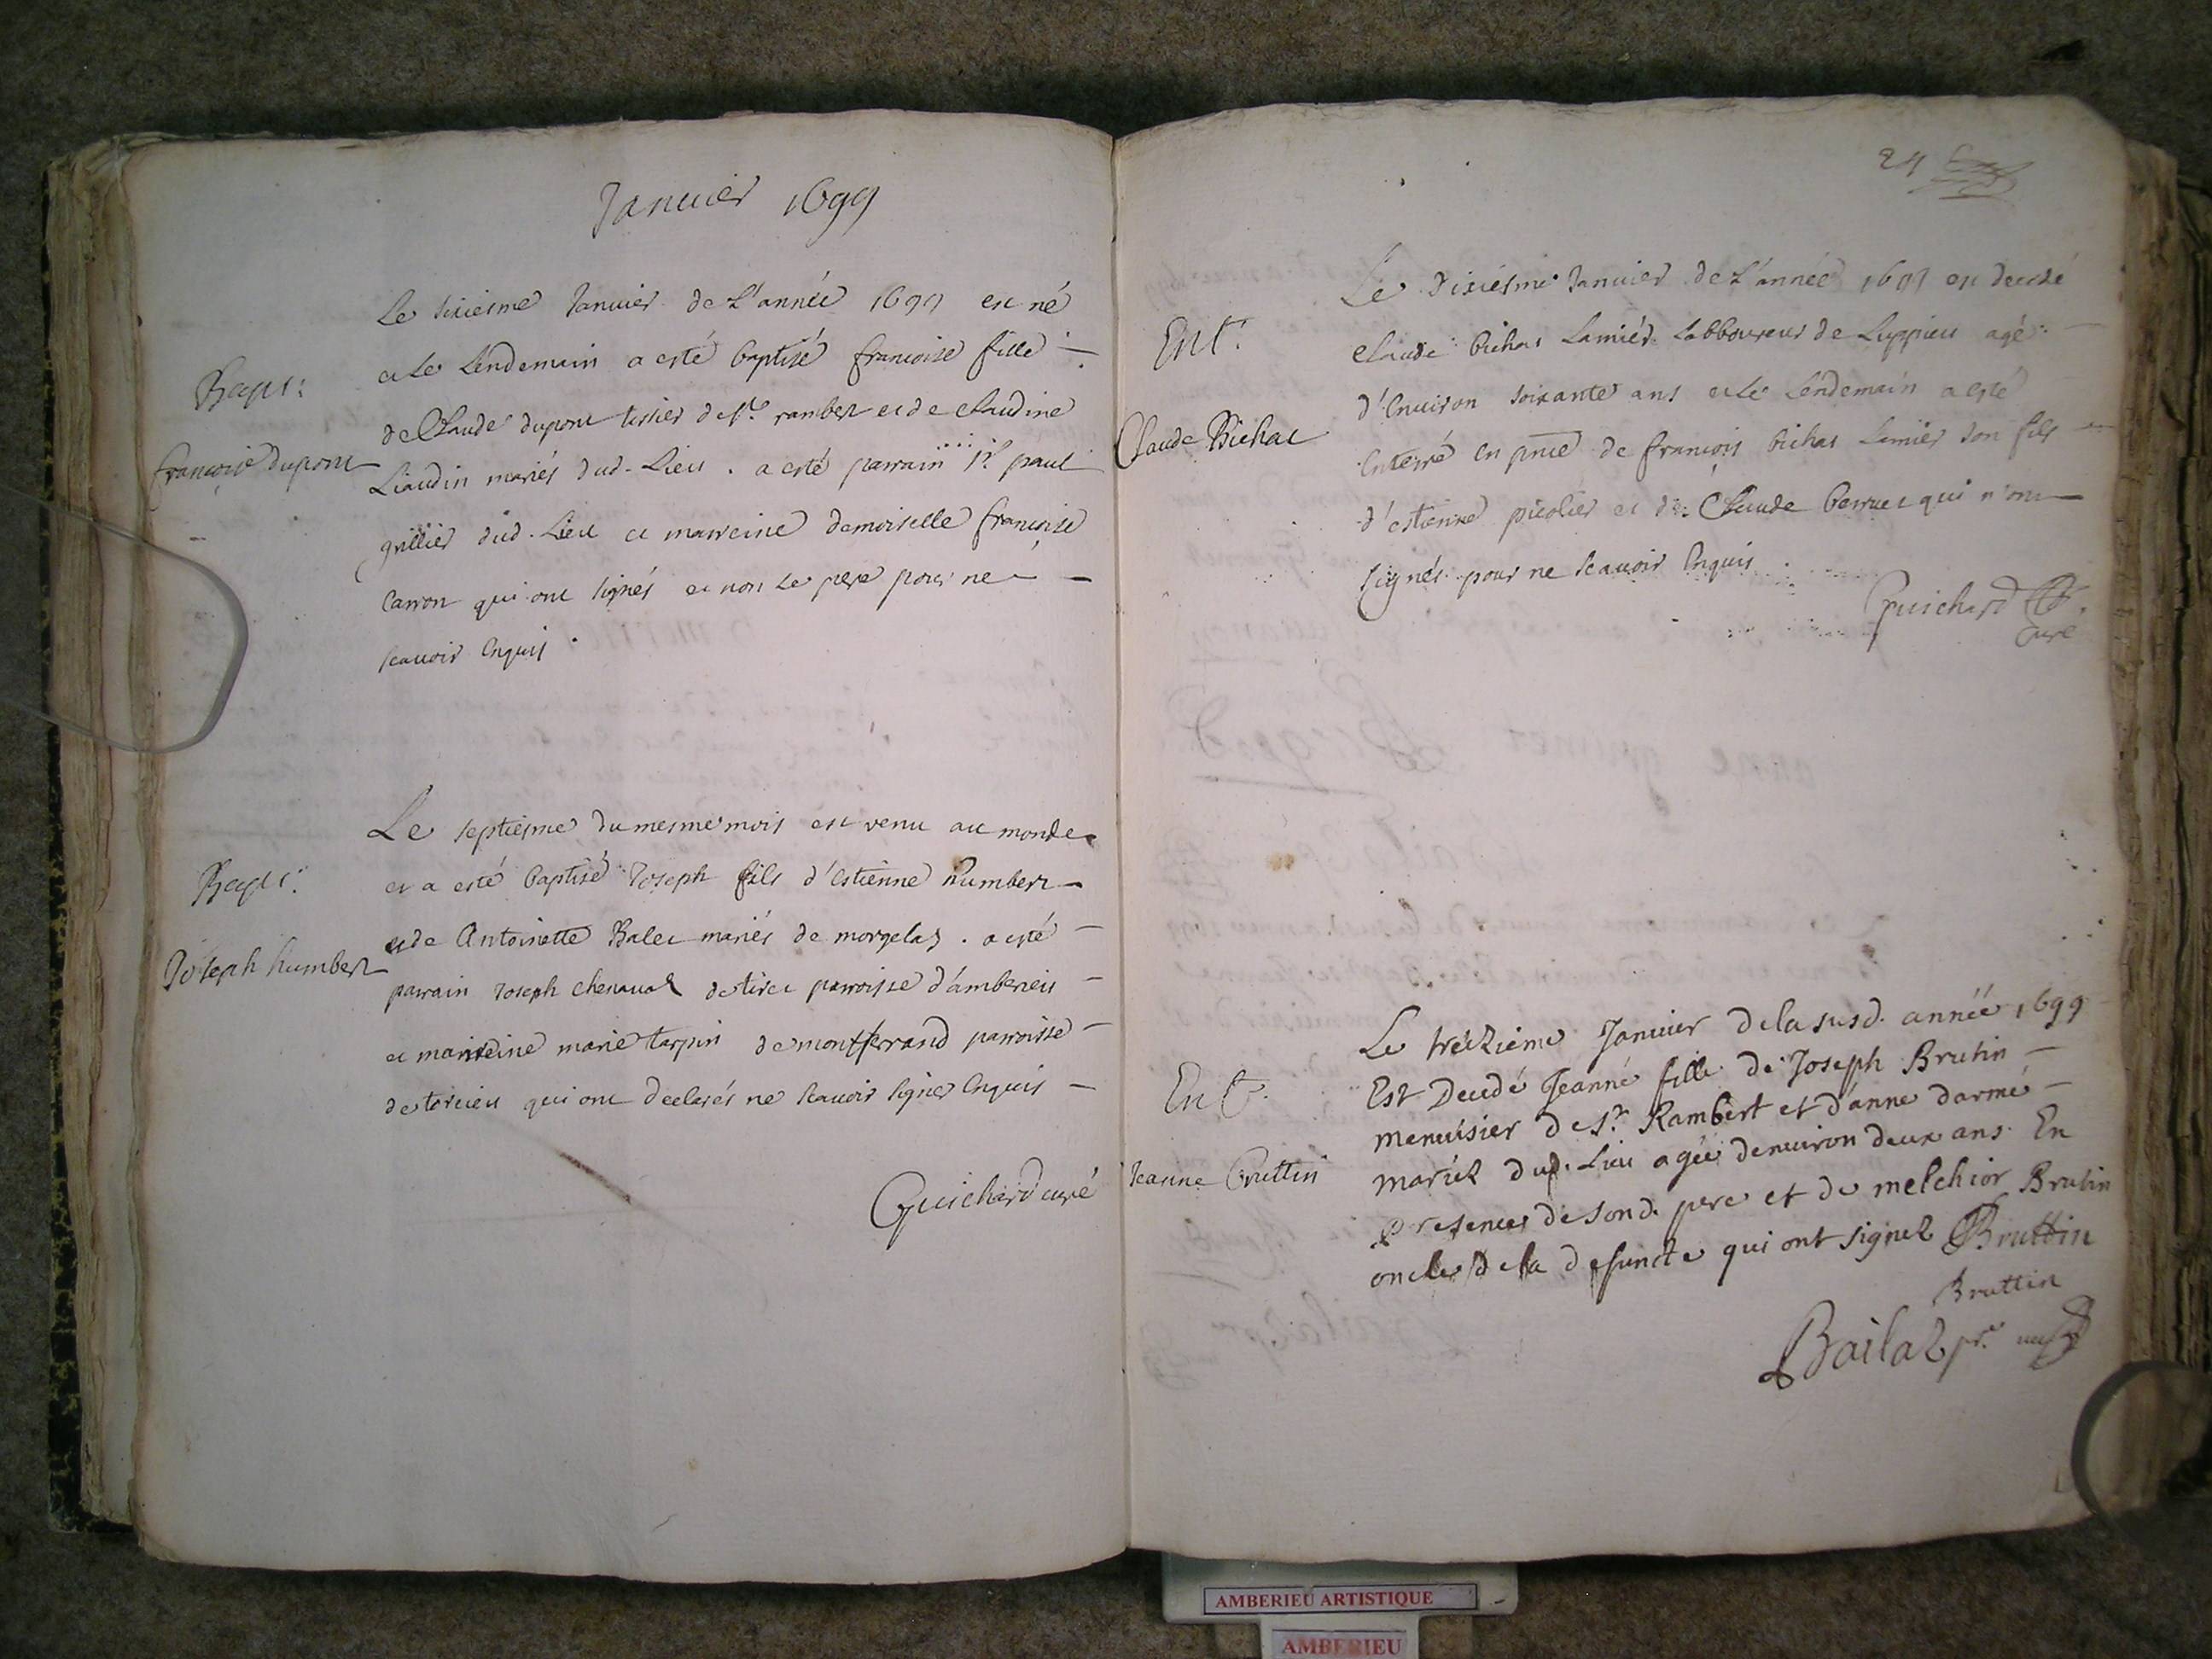 Januier 1699
Bapt:
françoise dupont
Le sixiesme Januier de L'année 1699 est né
et le Lendemain a esté baptisé françoise fille
de Claude dupont tissier de st. rambert et de claudine
Liaudin mariés dud. Lieu . a esté parrain sr. paul
grillier dud. Lieu et marreine demoiselle françoise
Carron qui ont signés et non le pere pour ne
scauoir Enquis
Bapt:
Joseph humbert
Le septiesme du mesme mois est venu au monde
et a esté baptisé Joseph fils d'Estienne humbert
et de Antoinette Balet mariés de morgelas . a esté
parrain Joseph chenaual de tiret parroisse d'amberieu
et marreine marie tarpin de montferrand parroisse
de torcieu qui ont declarés ne scauoir signer Enquis
Guichard curé
24
Ent.
Claude Bichat
Le Dixiésme Januier de L'année 1699 est decedé
claude bichat Lamiér Labboureur de Luppieu agé
d'Enuiron soixante ans et le Lendemain a esté
Enterré en pnce de françois bichat Lamiér son fils
d'estienne picolier et de Claude berruet qui n'ont
signés pour ne scauoir Enquis
Guichard
curé
Ent.
Jeanne Bruttin
Le tréizieme Januier dela susd. année 1699
Est Decedé Jeanne fille de Joseph Brutin
menuisier de st. Rambert et d'anne darme
mariez dud. Lieu agée denuiron deux ans. En
presences de sond. pere et de melchior Brutin
oncle de la defuncte qui ont signez Bruttin
Bruttin
Bailat pr. vic
AMBERIEU ARTISTIQUE
AMBERIEU